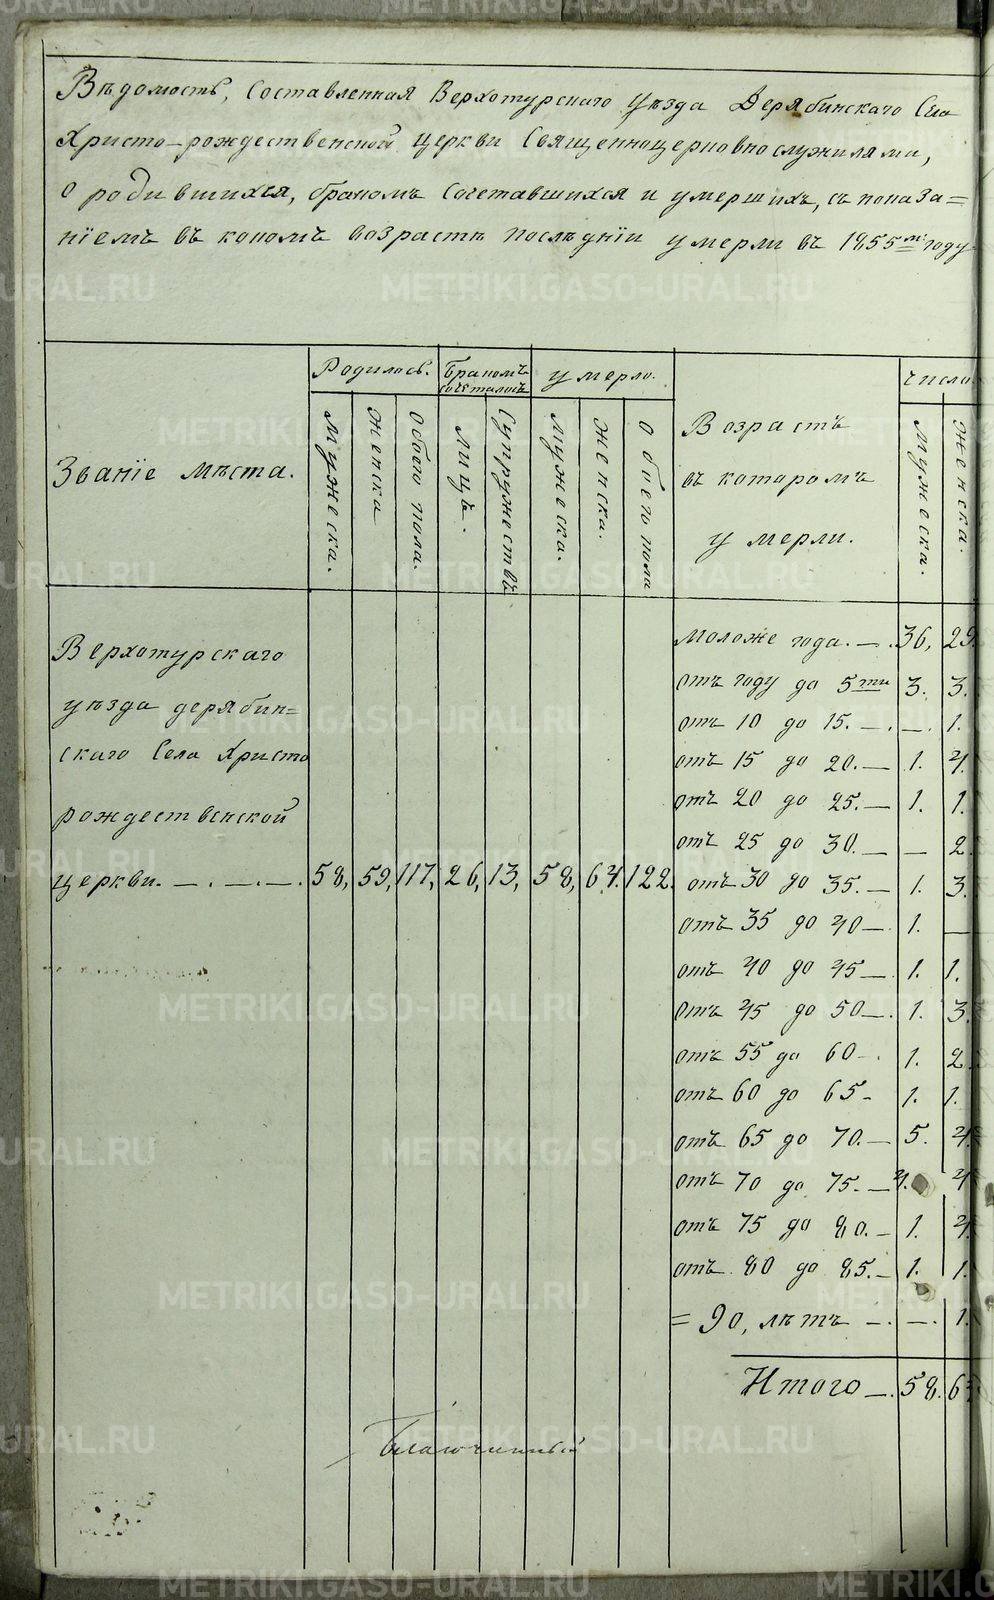 Вѣдомость, Составленная Верхотурскаго Уѣзда Дерябинскаго Села
Христо-рождественской церкви Священноцерковнослужилями,
о родившихся, бракомъ Сочетавшихся и умершихъ, съ показа=
нїемъ въ коκомъ возрастѣ послѣднїи умерли въ 1855м году
Званїе мѣста.
Родилось.
Бракомъ сочеталось
умерло.
Возрастъ
въ которомъ
умерли.
число
Мужеска.
женска
обоего пола.
лицъ.
Супружествъ
Мужеска.
женска.
обоего пола
Мужеска.
женска.
Верхотурскаго
уѣзда дерябин=
скаго Села Христо
рождественской
церкви. — . — . — . 58, 59, 117, 26, 13, 58, 64. 122.
моложе года. — . 36, 29
отъ году до 5ти 3. 3.
отъ 10 до 15. — . — . 1.
отъ 15 до 20. — 1. 4.
отъ 20 до 25. — 1. 1.
отъ 25 до 30. — — 2
отъ 30 до 35. — 1. 3.
отъ 35 до 40 — 1. —
отъ 40 до 45 — . 1. 1.
отъ 45 до 50 — . 1. 3
отъ 55 до 60 - . 1. 2
отъ 60 до 65 - 1. 1.
отъ 65 до 70. — 5. 4
отъ 70 до 75. — 4. 4
отъ 75 до 80. — 1. 4.
отъ 80 до 85. — 1. 1.
= 90, лѣтъ — . — . 1.
Итого — . 58. 64
Благочинный
METRIKI.GASO-URAL.RU